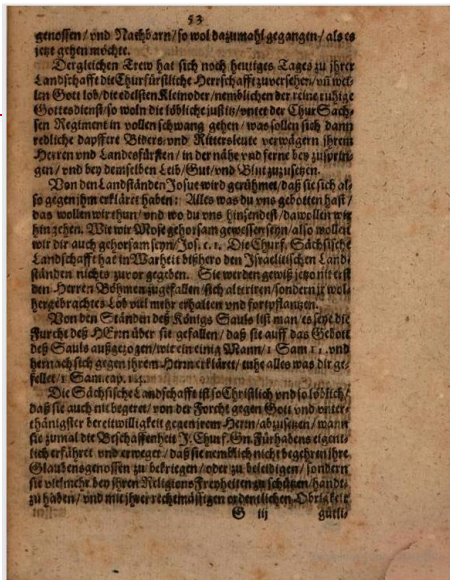 53
genossen / vnd Nachbarn / so wol dazumahl gegangen / als es
jetzt gehen möchte.
Dergleichen Trew hat sich noch heutiges Tages zu jhrer
Landschafft die Churfürstliche Herrschafft zuversehen / vñ wel-
len Gott lob / die edelsten Kleinoder / nemblichen der reine ruhige
Gottesdienst / so woln die löbliche justitz / vnter der Chur Säch-
sen Regiment in vollen schwang gehen / was sollen sich dann
redliche dapffere Biders / vnd Rittersleute verwägern jhrem
Herren vnd Landesfürsten / in der nähe vnd ferne bey zusprin-
gen / vnd bey demselben Leib / Gut / vnd Blut zuzusetzen.
Von den Landständen Josue wird gerühmet / daß sie sich al-
so gegen jhm erkläret haben: Alles was du vns gebotten hast /
das wollen wir thun / vnd wo du vns hinsendest / da wollen wir
hin gehen. Wie wir Mose gehorsam gewesen seyn / also wollen
wir dir auch gehorsam seyn / Jos. c. 1. Die Churf. Sächsische
Landschafft hat in Warheit bißhero den Jsraelitischen Land-
ständen nichts zuvor gegeben. Sie werden gewiß jetzo nit erst
den Herren Böhmen zugefallen / sich alteriren / sondern jr wol
hergebrachtes Lob viel mehr erhalten vnd fortpflanzen.
Von den Ständen deß Königs Sauls list man / es seye die
Furcht deß HErrn über sie gefallen / daß sie auff das Gebott
deß Sauls außgezogen / wie ein einig Mann / 1 Sam 11. vnd
hernach sich gegen jhrem Herrn erkläret / tuhe alles was dir ge-
fellet / 1 Sam. cap.
Die Sächsische Landschafft ist so Christlich vnd so löblich /
daß sie auch nit begeret / von der Forcht gegen Gott vnd vnter-
thänigster bereitwilligkeit gegen jrem Herrn / abzusetzen / wann
sie zumal die Beschaffenheit J. Churf. Gn. Fürhabens eigent-
lich erfähret vnd erweget / daß sie nemblich nicht begehrn jhre
Glaubensgenossen zu bekriegen / oder zu beleidigen / sondern
sie vielmehr bey jhren Religions Freyheiten zu schützen / handt
zu haben / vnd mit jhrer rechtmässigen ordentlichen Obrigkeit
G iij gütli-